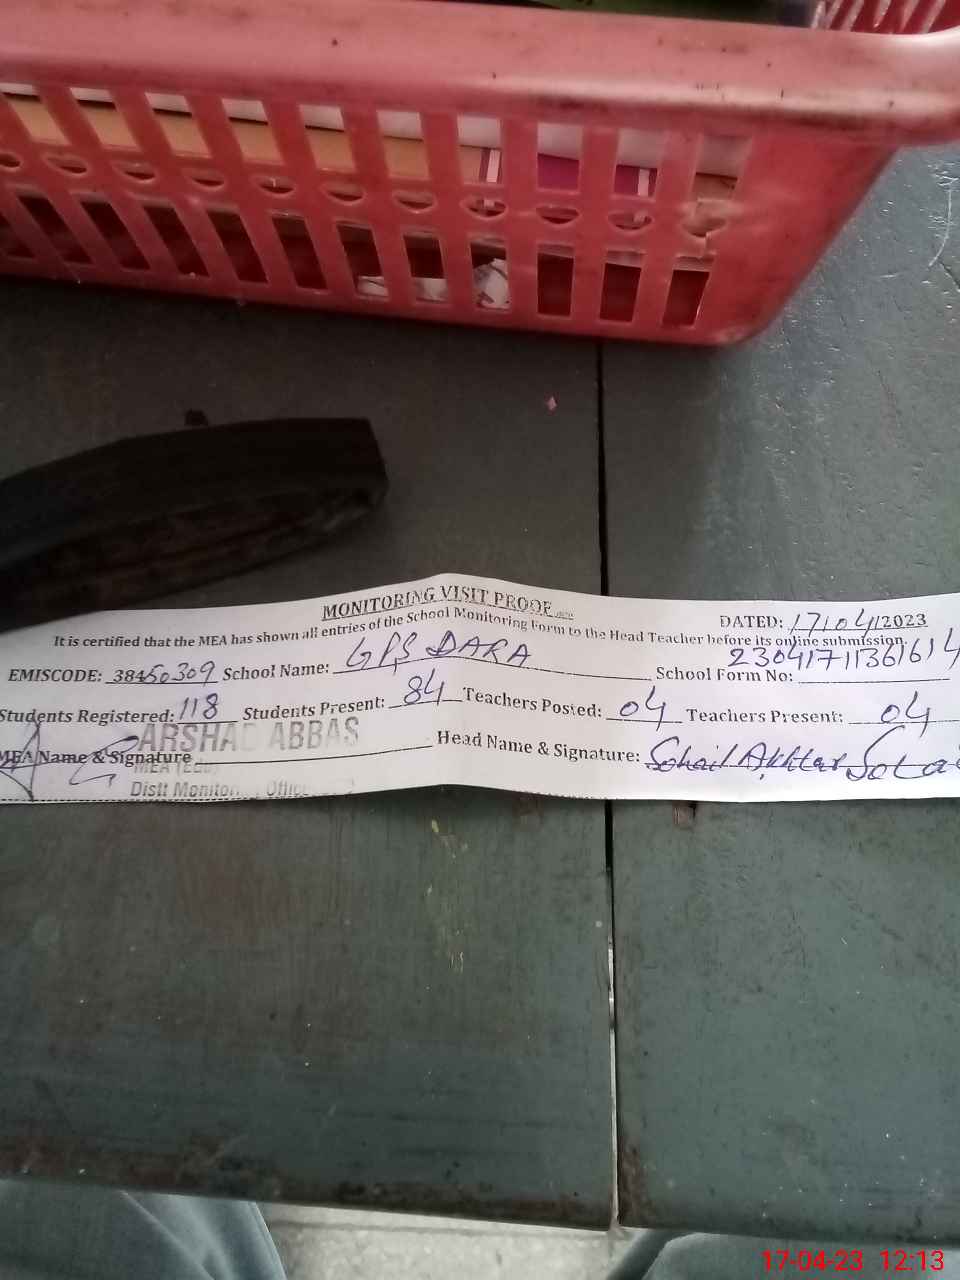 MONITORING VISIT PROOF
DATED: 17/04/2023
It is certified that the MEA has shown all entries of the School Monitoring Form to the Head Teacher before its online submission.
EMISCODE: 38450309 School Name: GPS DARA School Form No: 23041711361614
Students Registered: 118 Students Present: 84 Teachers Posted: 04 Teachers Present: 04
MEA Name & Signature ARSHAD ABBAS Head Name & Signature: Sohail Akhtar
MEA
Distt Monitor
17-04-23 12:13